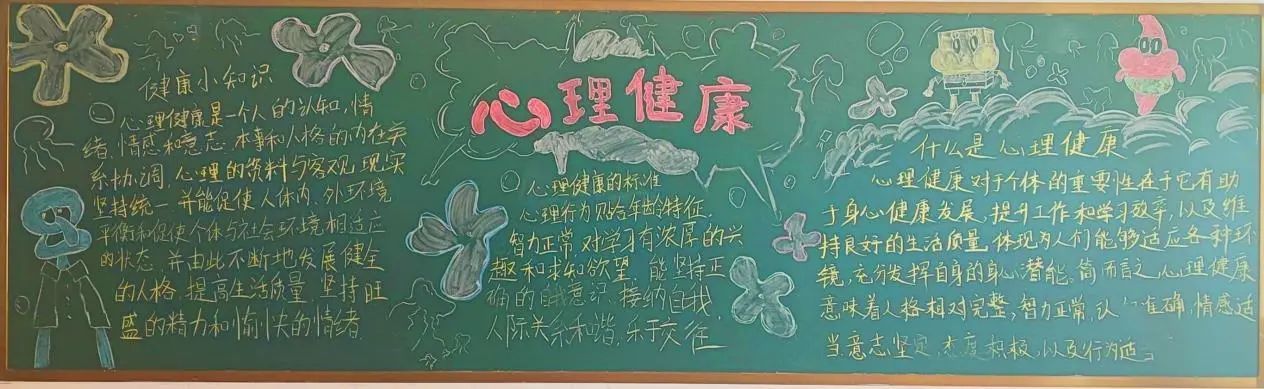 心理健康
健康小知识
心理健康是一个人的认知,情
绪、情感和意志、本事和人格的内在关
系协调,心理的资料与客观现实
坚持统一,并能促使人体内、外环境
平衡和促使个体与社会环境相适应
的状态,并由此不断地发展健全
的人格,提高生活质量,坚持旺
盛的精力和愉快的情绪
心理健康的标准
心理行为贴合年龄特征,
智力正常,对学习有浓厚的兴
趣和求知欲望,能坚持正
确的自我意识,接纳自我,
人际关系和谐,乐于交往
什么是心理健康
心理健康对于个体的重要性在于它有助
于身心健康发展,提升工作和学习效率,以及维
持良好的生活质量,体现为人们能够适应各种环
镜,充分发挥自身的身心潜能。简而言之,心理健康
意味着人格相对完整,智力正常,认 准确,情感适
当,意志坚定,态度积极,以及行为